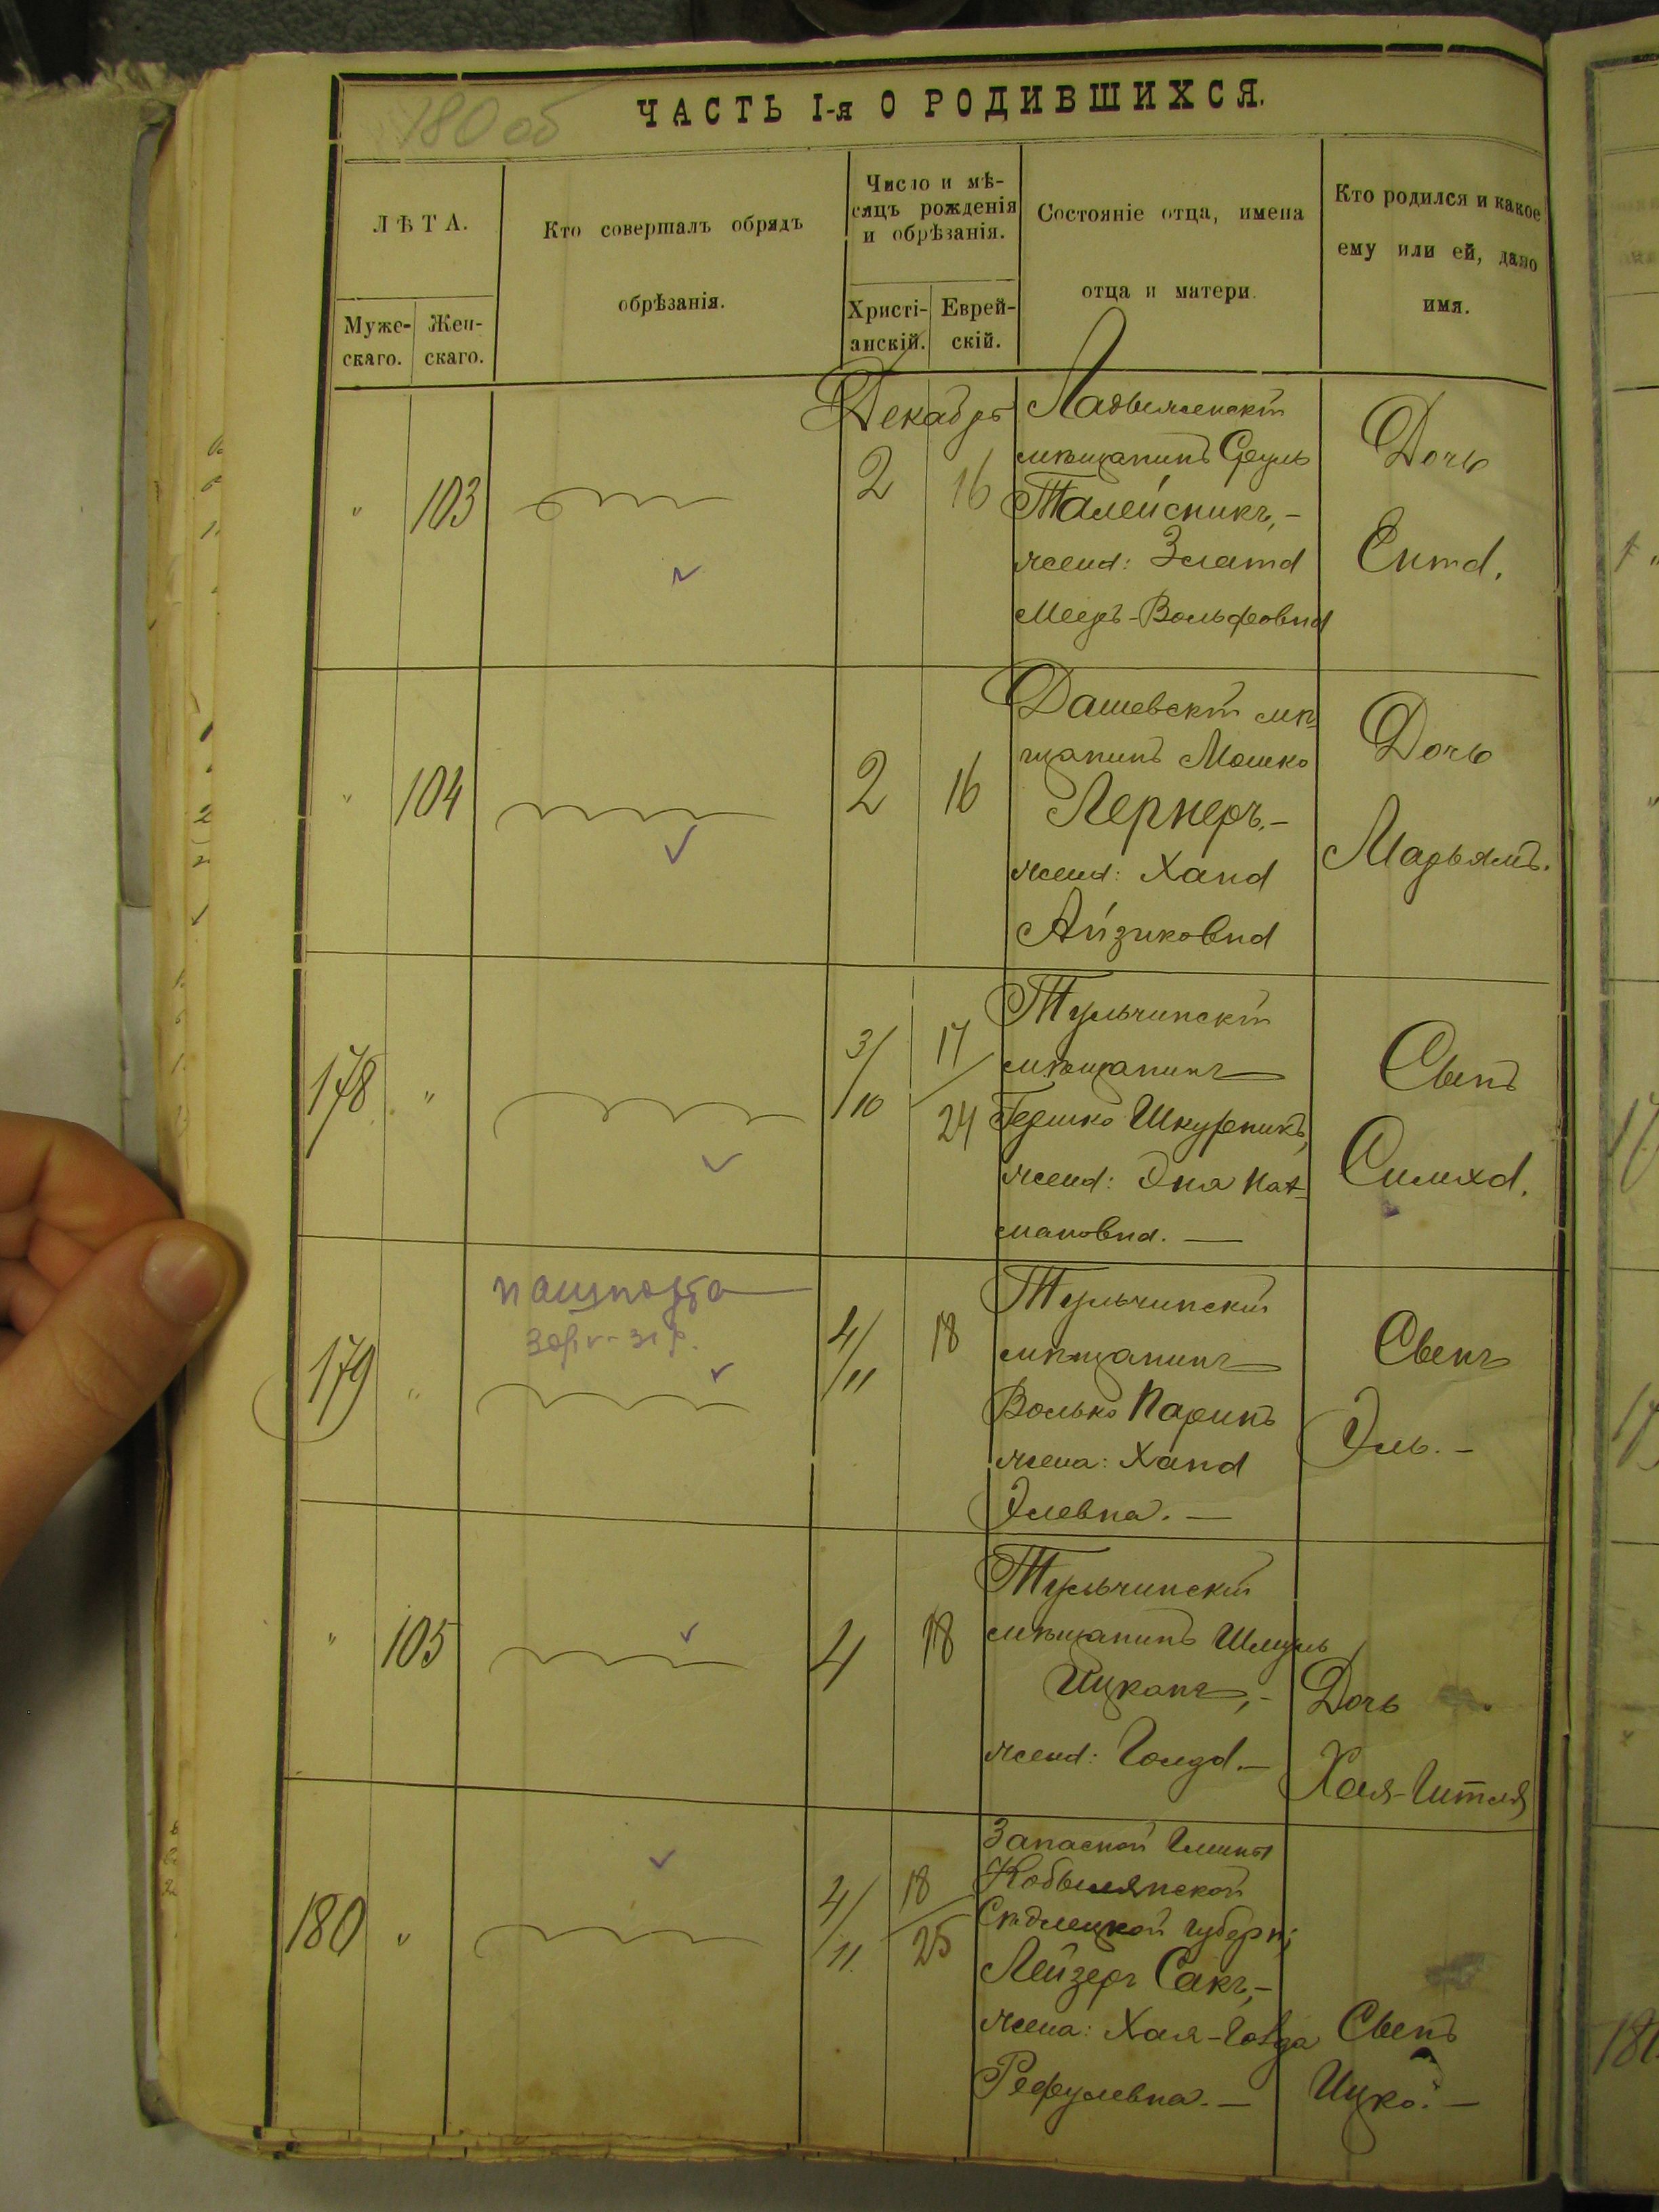 180 об
ЧАСТЬ I-я О РОДИВШИХСЯ.
ЛѢТА.
Муже-
скаго.
Жен-
скаго.
Кто совершалъ обрядъ
обрѣзанія.
Число и мѣ-
сяцъ рожденія
и обрѣзанія.
Христі-
анскій.
Еврей-
скій.
Состояніе отца, имена
отца и матери.
Кто родился и какое
ему или ей, дано
имя.
Декабрь
" 103 2 16
Ладыженскій
мѣщанинъ Сруль
Талейсникъ, -
жена: Злата
Мееръ-Вольфовна
Дочь
Ента.
" 104 2 16
Дашевскій мѣ-
щанинъ Мошко
Лернеръ. -
жена: Хана
Айзиковна
Дочь
Марьямъ.
178 " 3/10 17/24
Тульчинскій
мѣщанинъ
Гершко Шкурникъ,
жена: Эня Нах-
мановна. —
Сынъ
Симха.
179 " 4/11 18
пашпорта
Тульчинскій
мѣщанинъ
Волько Паринъ
жена: Хана
Элевна. —
Сынъ
Эль. -
" 105 4 18
Тульчинскій
мѣщанинъ Шмуль
Цуканъ, -
жена: Голда. -
Дочь
Хая-Гитля
180 " 4/11. 18/25
Запасной Гмины
Кобылянской
Сѣдлецкой губерніи
Лейзеръ Сакъ, -
жена: Хая-Голда
Рефулевна. —
Сынъ
Ицко. -